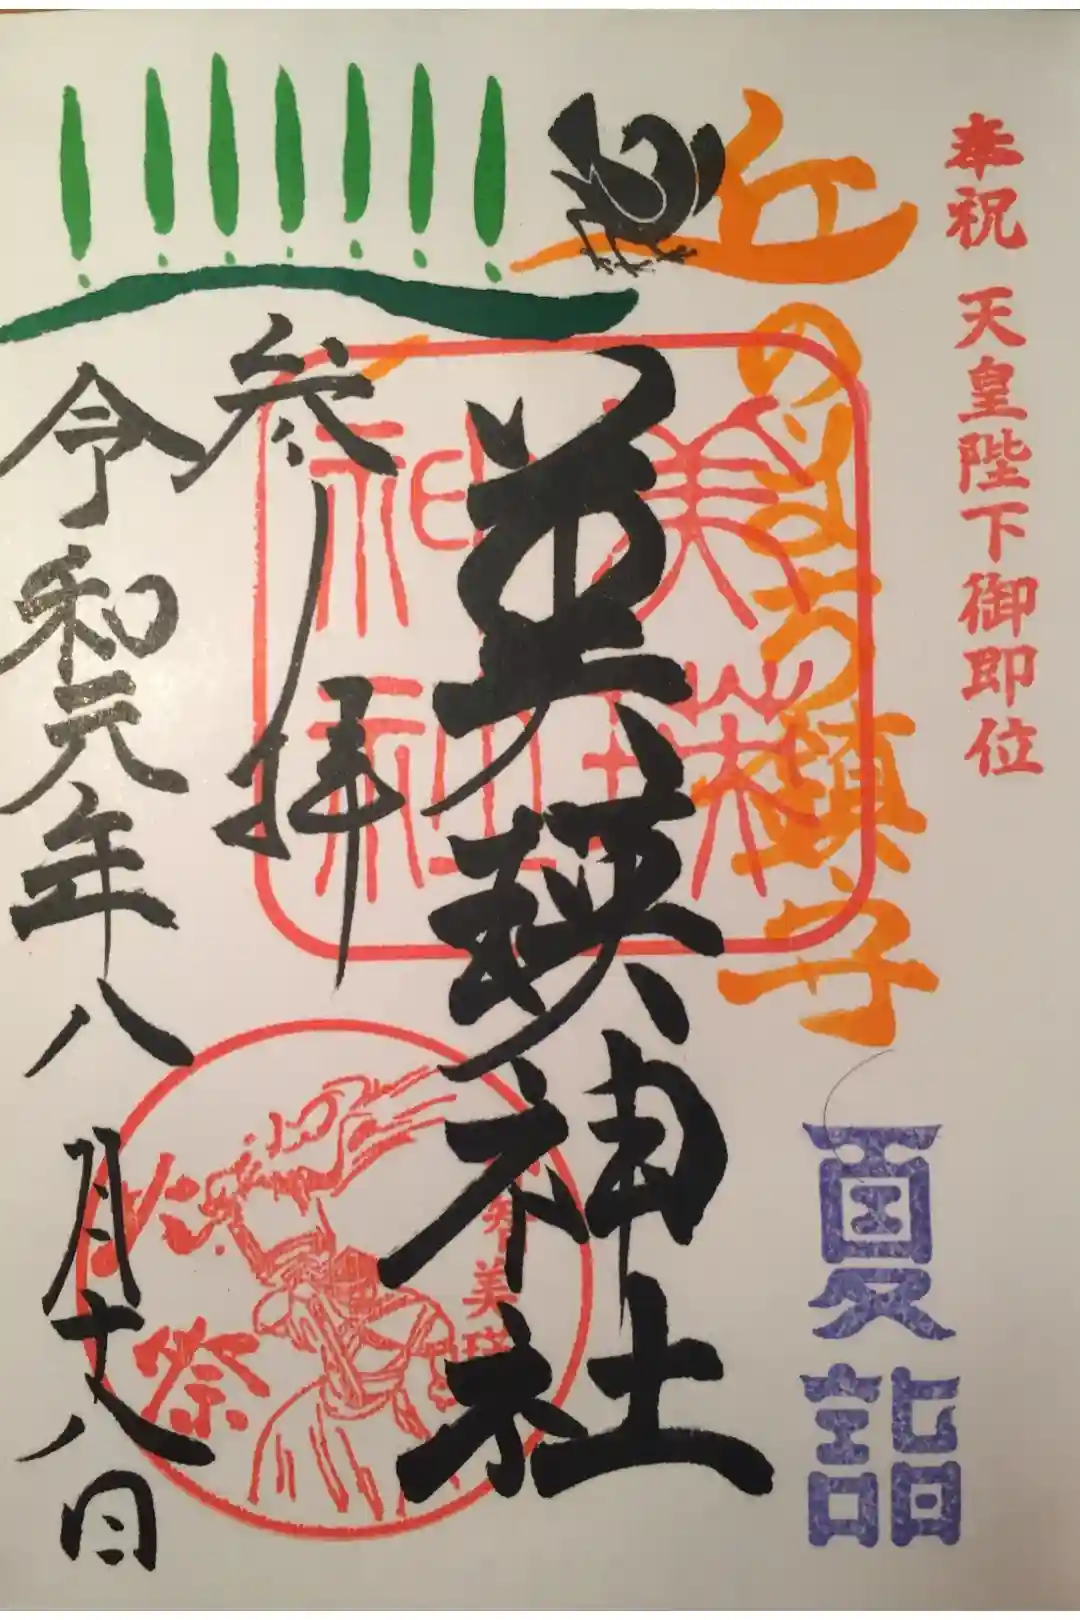 奉祝 天皇陛下御即位
丘のまち鎮守
夏詣
美瑛神社
美瑛
神社
美瑛
火祭
参拝
令和元年八月十八日